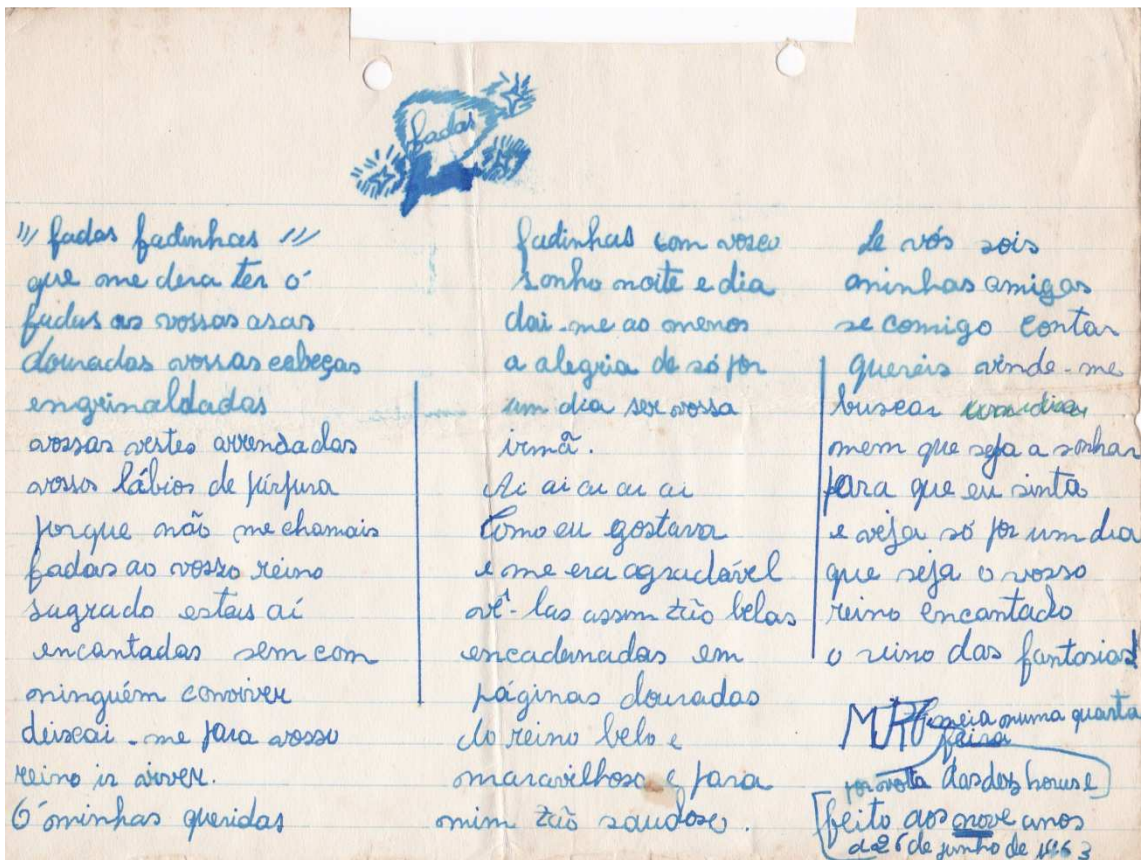 fadas
"fadas fadinhas"
que me dera ter ó
fadas as vossas asas
douradas vossas cabeças
engrinaldadas
vossas vestes arrendadas
vossos lábios de púrpura
porque não me chamais
fadas ao vosso reino
sagrado estais aí
encantadas sem com
ninguém conviver
deixai-me para vosso
reino ir viver.
Ó minhas queridas
fadinhas com vosco
sonho noite e dia
dai-me ao menos
a alegria de só por
um dia ser vossa
irmã.
Ai ai ai ai ai
Como eu gostava
e me era agradável
vê-las assim tão belas
encadernadas em
páginas douradas
do reino belo e
maravilhoso e para
mim tão saudoso.
Se vós sois
minhas amigas
se comigo contar
quereis vinde-me
buscar um dia
nem que seja a sonhar
para que eu sinta
e veja só por um dia
que seja o vosso
reino encantado
o reino das fantasias!
numa quarta
feira
por volta das dez horas e
[feito aos nove anos
a 26 de junho de 1963